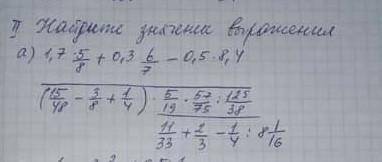 II Найдите значения выражения
а) 1,7 · 5/8 + 0,3 6/7 − 0,5 · 8,4
(15/48 − 3/8 + 1/4) : 5/19 · 57/75 : 125/38
11/33 + 2/3 − 1/4 : 8 1/16